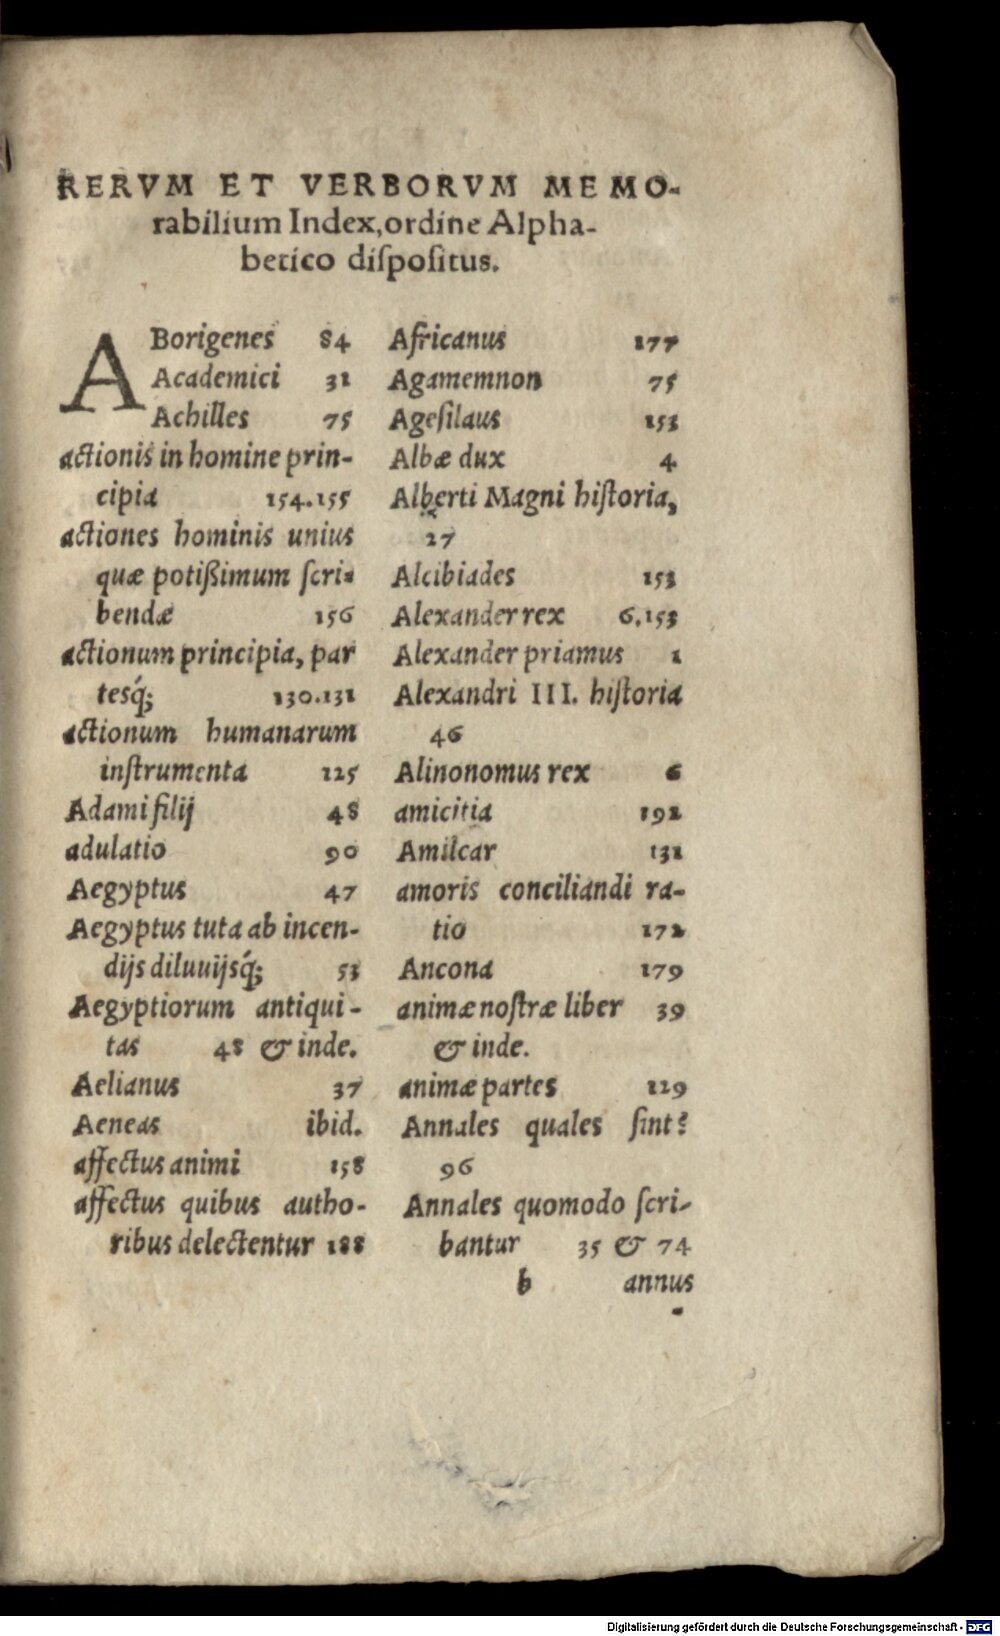 RERVM ET VERBORVM MEMO-
rabilium Index, ordine Alpha-
betico diſpoſitus.
ABorigenes 84
Academici 31
Achilles 75
actionis in homine prin-
cipia 154.155
actiones hominis unius
quæ potißimum ſcri-
bendæ 156
actionum principia, par
tesq́; 130.131
actionum humanarum
inſtrumenta 125
Adami filij 48
adulatio 90
Aegyptus 47
Aegyptus tuta ab incen-
dijs diluuijsq́; 53
Aegyptiorum antiqui-
tas 48 & inde.
Aelianus 37
Aeneas ibid.
affectus animi 158
affectus quibus autho-
ribus delectentur 188
Africanus 177
Agamemnon 75
Ageſilaus 153
Albæ dux 4
Alberti Magni hiſtoria,
27
Alcibiades 153
Alexander rex 6.153
Alexander priamus 1
Alexandri III. hiſtoria
46
Alinonomus rex 6
amicitia 192
Amilcar 131
amoris conciliandi ra-
tio 172
Ancona 179
animæ noſtræ liber 39
& inde.
animæ partes 129
Annales quales ſint?
96
Annales quomodo ſcri-
bantur 35 & 74
b annus
Digitalisierung gefördert durch die Deutsche Forschungsgemeinschaft - DFG